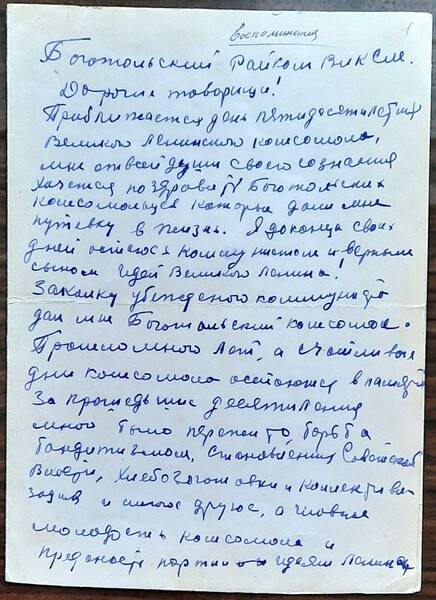 воспоминания 1
Боготольский Райком ВЛКСМ.
Дорогие товарищи!
Приближается день пятидесятилетия
Великого Ленинского комсомола,
мне от всей души своего сознания
хочется поздравить Боготольских
комсомольцев которые дали мне
путевку в жизнь. Я до конца своих
дней остаюся коммунистом и верным
сыном идей Великого Ленина!
Закалку убежденого коммуниста
дал мне Боготольский комсомол.
Прошло много лет, а счастливые
дни комсомола остаются в памяти
За прошедшие десятилетия
мной было пережито борьба
бандитизмом, становления Советской
Власти, Хлебозаготовки и коллективи-
зация и многое другое, а главное
молодость комсомола и
преданость партии идеям Ленина